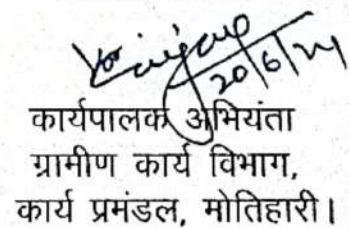 20/6/24
कार्यपालक अभियंता
ग्रामीण कार्य विभाग,
कार्य प्रमंडल, मोतिहारी।